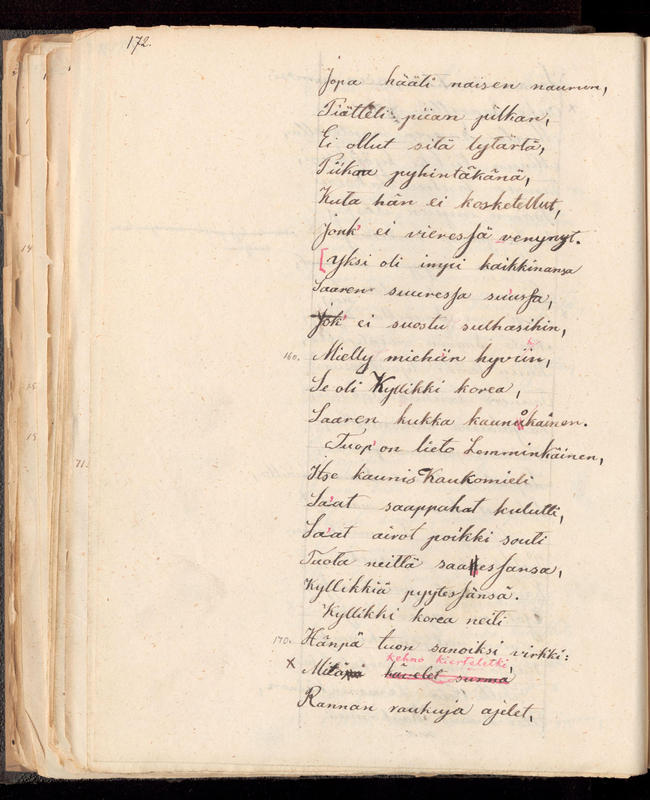 172.
Jopa hääti naisen naurun,
Piätteli piian pilkan,
Ei ollut sitä tytärtä,
Piikoa pyhintäkänä,
Kuta hän ei kosketellut,
Jonk' ei vieressä venynyt.
[Yksi oli impi kaikkinansa
Saaren suuressa su'ussa,
Jok' ei suostu sulhasihin,
160. Mielly miehiin hyviin,
Se oli Kyllikki korea,
Saaren kukka kaunokainen.
Tuop' on lieto Lemminkäinen,
Itse kaunis Kaukomieli
Sa'at saappahat kulutti,
Sa'at airot poikki souti
71.
Tuota neittä saa'essansa,
Kyllikkiä pyytessänsä.
Kyllikki korea neiti
170. Hänpä tuon sanoiksi virkki:
kehno kierteletki,
x Mitäpä häelet surma
Rannan raukuja ajelet,
14
15
15